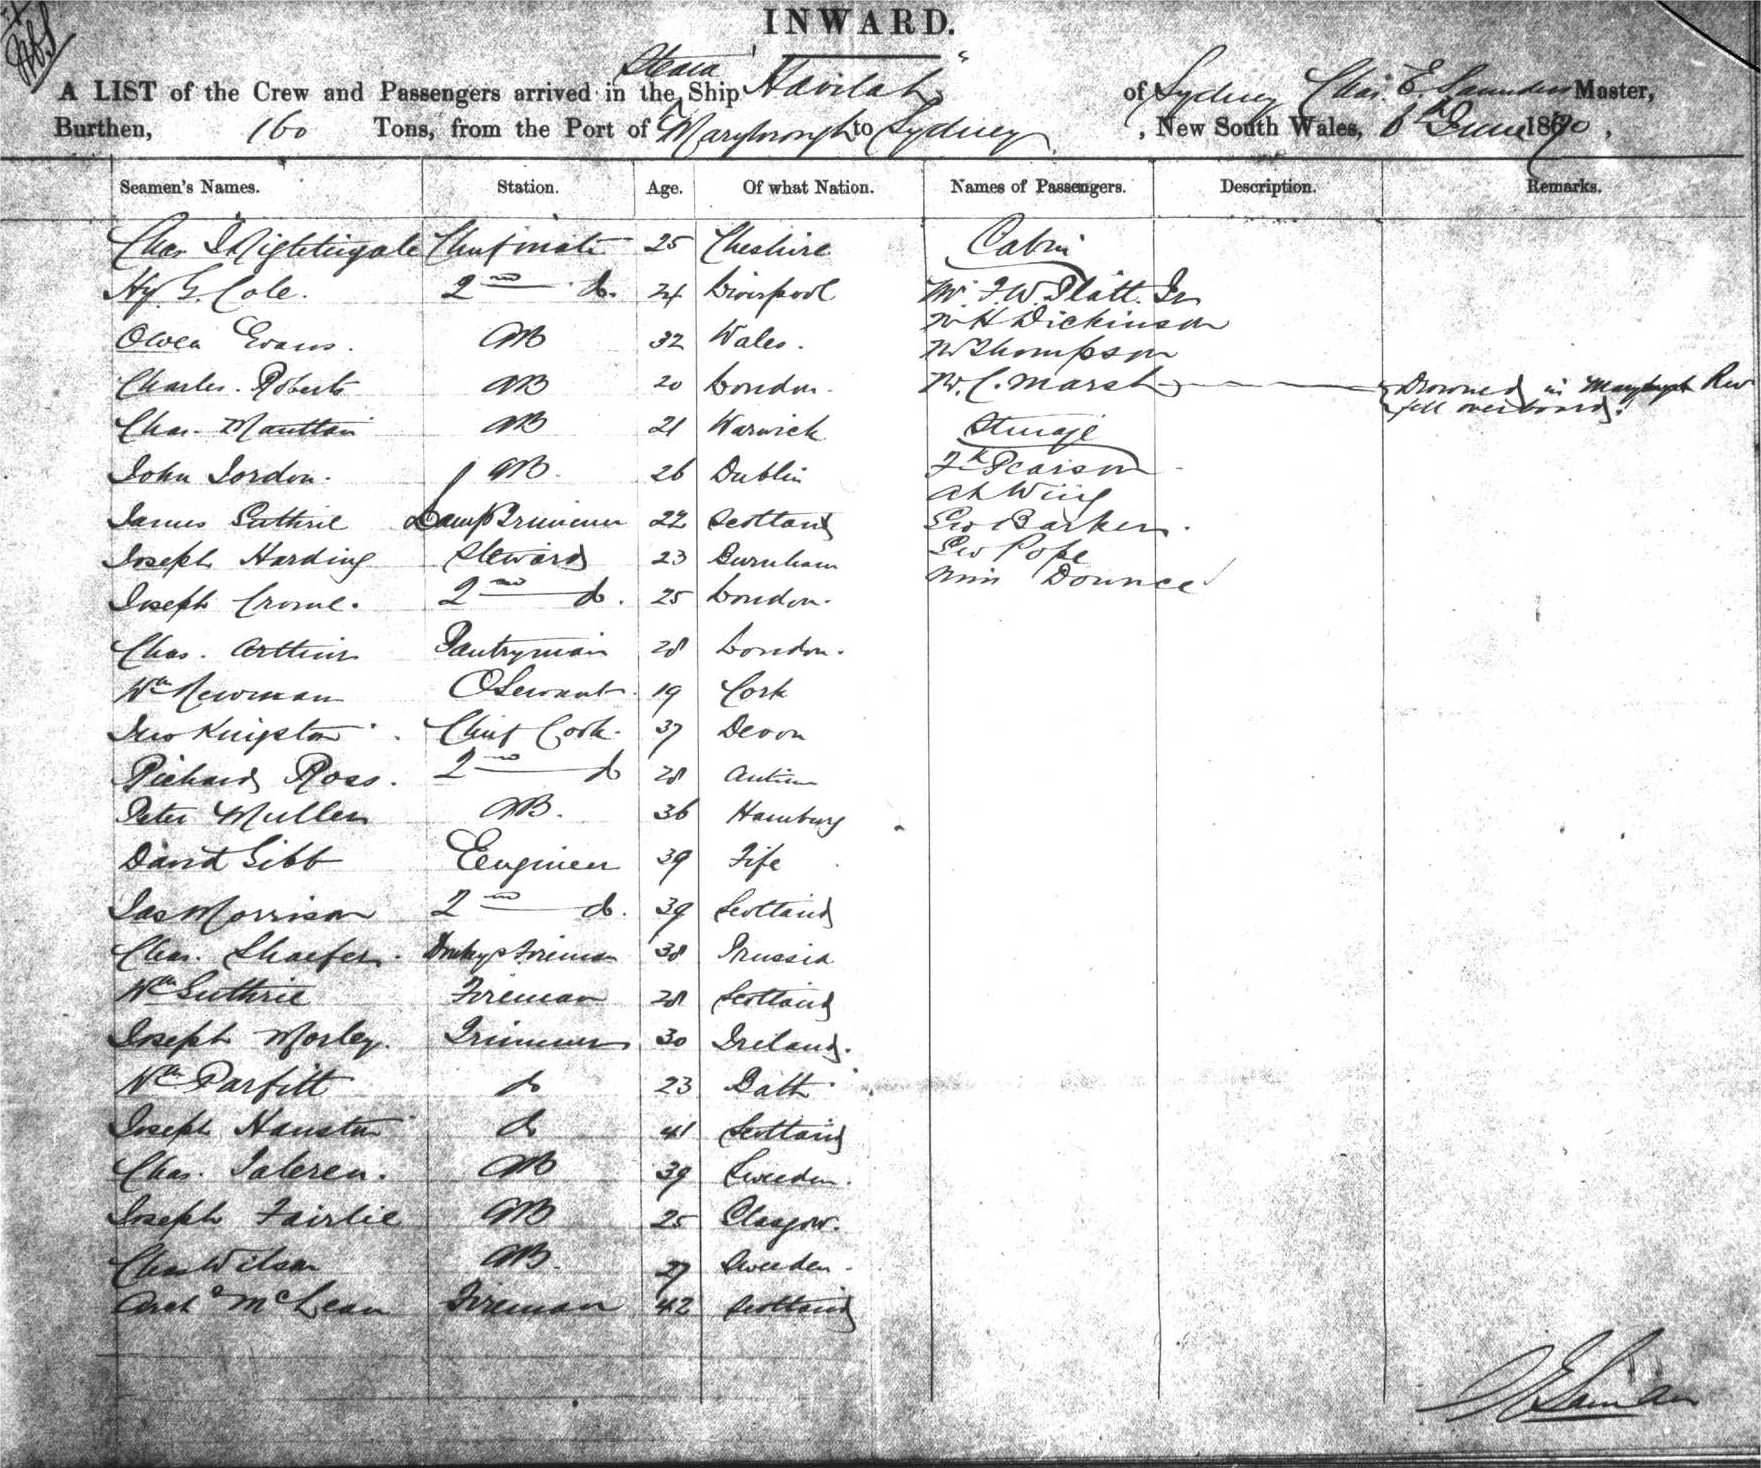 INWARD.
Steam
A LIST of the Crew and Passengers arrived in the Ship "Havilah" of Sydney Chas. E. Saunders Master,
Burthen, 160 Tons, from the Port of Maryborough to Sydney, New South Wales, 6th June 1870,
Seamen's Names. Station. Age. Of what Nation. Names of Passengers. Description. Remarks.
Chas Nightingale Chief mate 25 Cheshire Cabin
Hy. G. Cole. 2nd do. 24 Liverpool Mr. F. W. Platt. Jr
Mr H Dickinson
Owen Evans. AB 32 Wales. Mr Thompson
Charles. Roberts AB 20 London. Mr. C. Marsh Drowned in Maryboro Riv
fell overboard.
Chas. AB 21 Warwick Steerage
John Jordon. AB. 26 Dublin Fk Pearson
Ah Wing
James Guthrie Lamp Trimmer 22 Scotland Geo Barker.
Joseph Harding Steward 23 Burnham Geo Pope
Miss Dounce
Joseph Crome. 2nd do. 25 London.
Chas. Arthur Pantryman 28 London.
Wm Newman O Servant. 19 Cork
Jno Kingston. Chief Cook. 37 Devon
Richard Ross. 2nd do 28 Antrim
Peter Mullen AB. 36 Hamburg
David Gibb Eengineer 39 Fife
Jas Morrison 2nd do. 39 Scotland
Chas. Shaefer. Donkey Fireman 38 Prussia
Wm Guthrie Fireman 28 Scotland
Joseph Morley. Trimmer 30 Ireland.
Wm Parfitt do 23 Bath
Joseph do 41 Scotland
Chas. AB 39 Sweeden.
Joseph Fairlie AB 25 Glasgow.
Chas Wilson AB. 27 Sweeden.
Archd McLean Fireman 42 Scotland